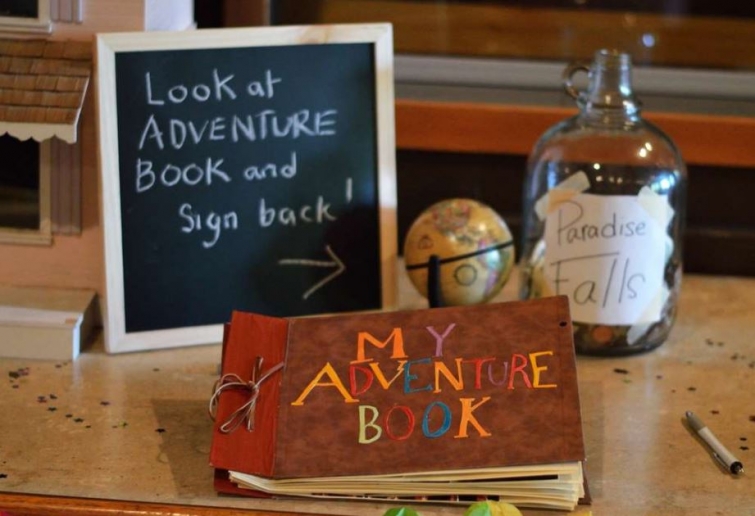 Look at
ADVENTURE
BOOK and
Sign back!
Paradise
Falls
MY
ADVENTURE
BOOK